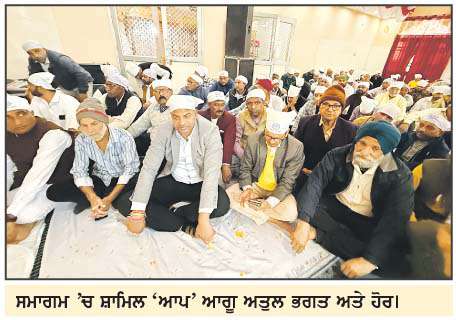 ਸਮਾਗਮ 'ਚ ਸ਼ਾਮਿਲ 'ਆਪ' ਆਗੂ ਅਤੁਲ ਭਗਤ ਅਤੇ ਹੋਰ।